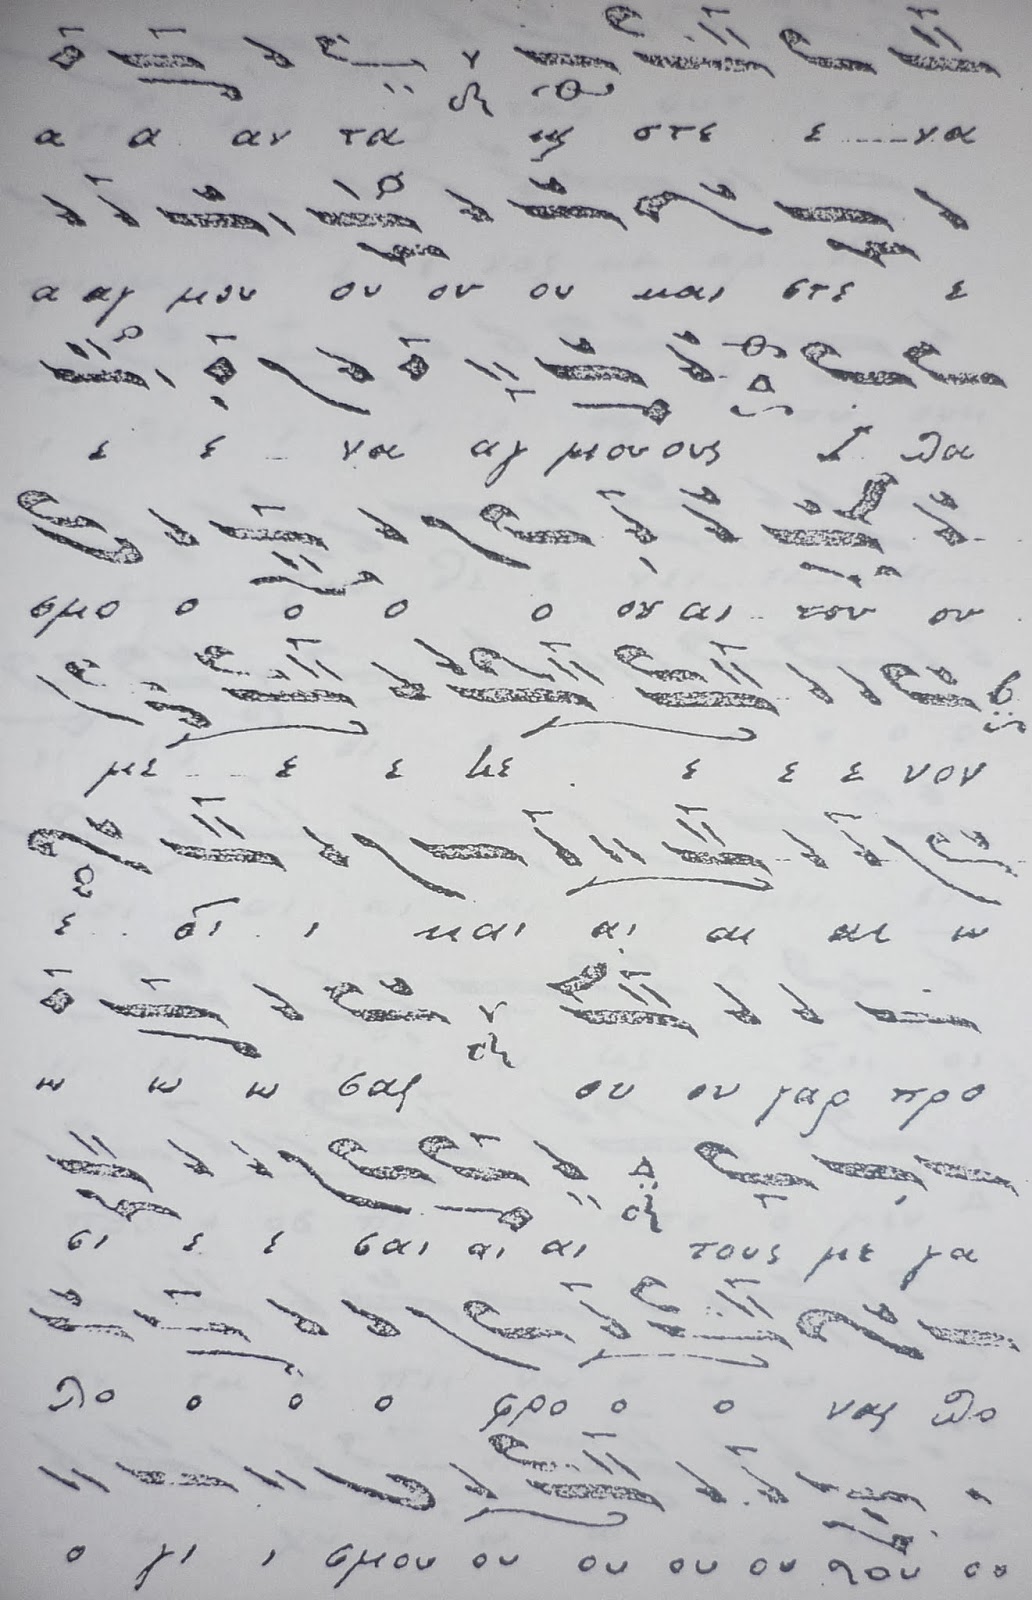 α α αν τα ης στε ε να
α αγ μου ου ου ου και στε ε
ε ε να αγ μουους πλα
σμο ο ο ο ο ον αι του ου
με ε ε με ε ε ε νον
ε δι ι και αι αι αι ω
ω ω ω σας ου ου γαρ προ
σι ε ε σαι αι αι τους με γα
λο ο ο ο φρο ο ο νας λο
ο γι ι σμου ου ου ου ου του ου